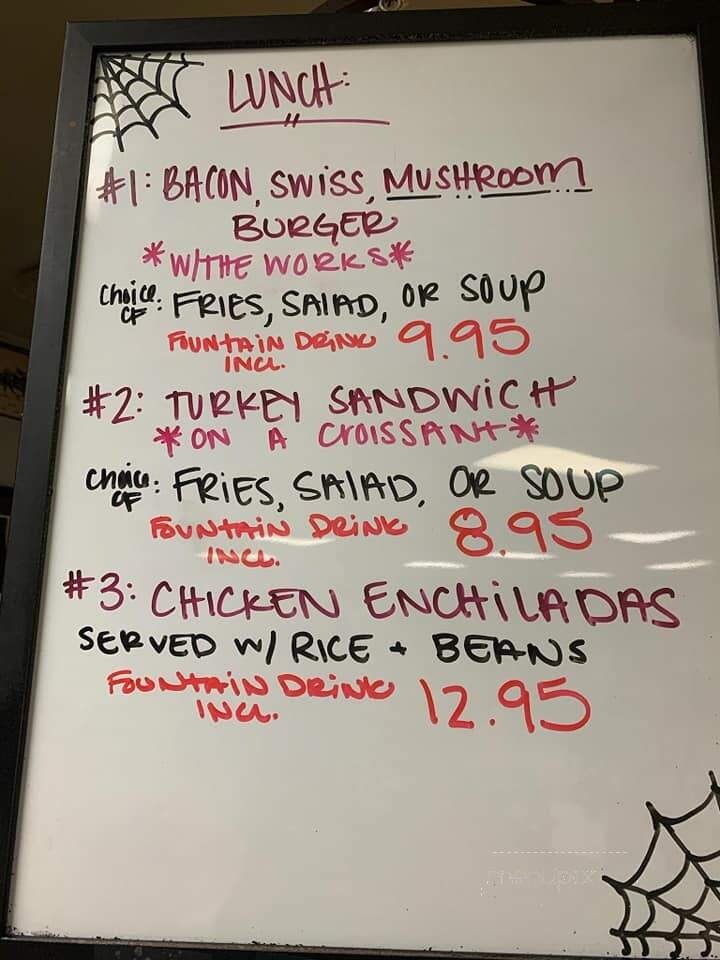 LUNCH:
#1: BACON, SWISS, MUSHROOM
BURGER
*W/THE WORKS*
Choice OF: FRIES, SALAD, OR SOUP
FOUNTAIN DRINK INCL. 9.95
#2: TURKEY SANDWICH
*ON A CROISSANT*
Choice OF: FRIES, SALAD, OR SOUP
FOUNTAIN DRINK INCL. 8.95
#3: CHICKEN ENCHILADAS
SERVED W/ RICE + BEANS
FOUNTAIN DRINK INCL. 12.95